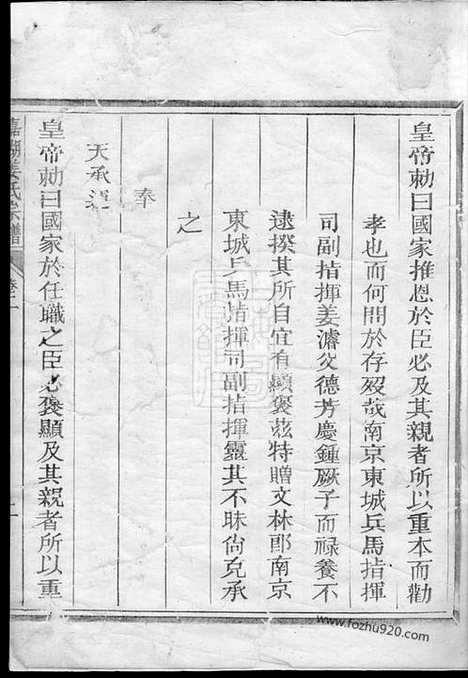 皇帝勅曰國家推恩於臣必及其親者所以重本而勸
孝也而何間於存歿哉南京東城兵馬指揮
司副指揮姜濬父德芳慶鍾厥子而禄養不
逮揆其所自宜有顯褒茲特贈文林郎南京
東城兵馬指揮司副指揮靈其不昧尙克承
之
奉
天承運
皇帝勅曰國家於任職之臣必褒顯及其親者所以重
姜氏宗譜 卷二
二
www.fozhu920.com